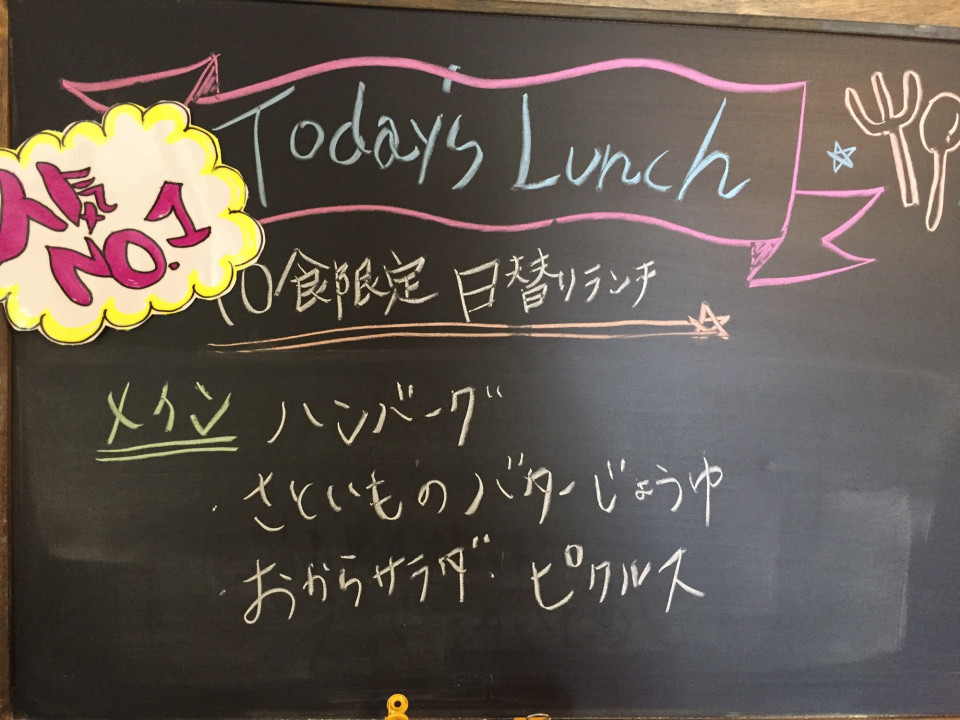 Today's Lunch
人気
NO.1
10食限定 日替りランチ
メイン ハンバーグ
・さといものバターじょうゆ
・おからサラダ・ピクルス